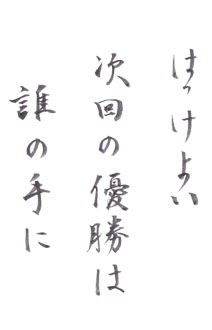 はっけよい
次回の優勝は
誰の手に